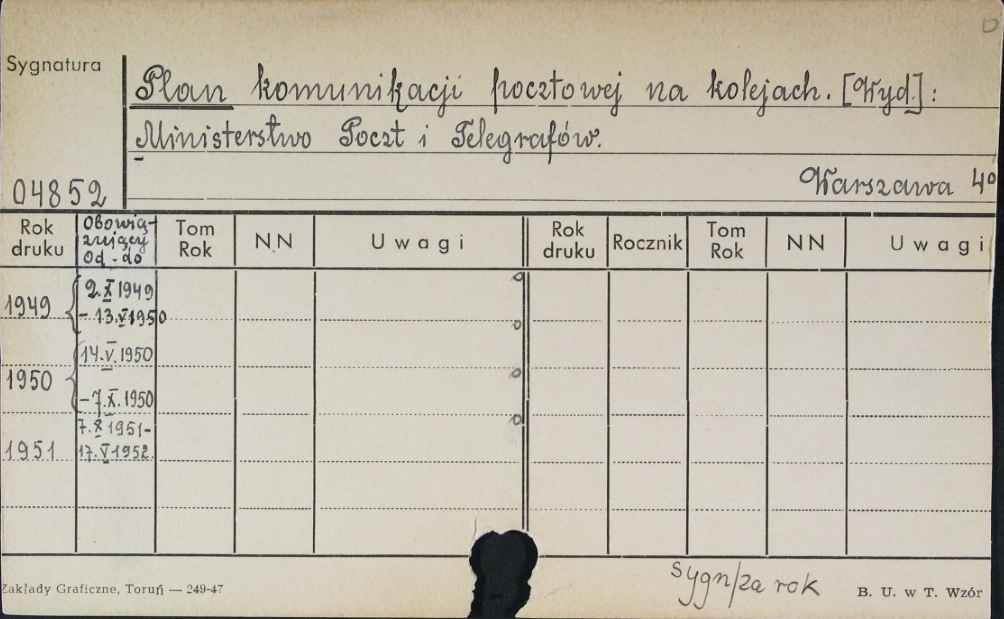 Sygnatura
Plan komunikacji pocztowej na kolejach. [Wyd.]:
Ministerstwo Poczt i Telegrafów.
04852
Warszawa 4º
Rok druku Obowiązujący Od - do Tom Rok NN Uwagi Rok druku Rocznik Tom Rok NN Uwagi
1949 2.X 1949
- 13.V 1950
14.V. 1950
1950
- 7.X. 1950
7.X 1951-
1951 17.V 1952.
sygn/za rok
Zakłady Graficzne, Toruń — 249-47
B. U. w T. Wzór